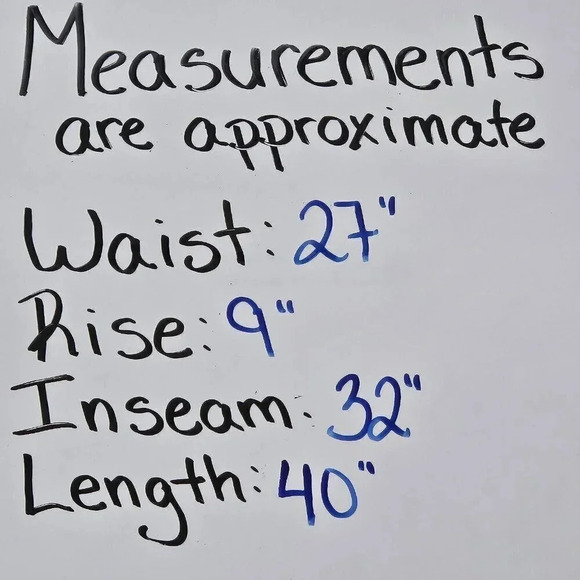 Measurements
are approximate
Waist: 27"
Rise: 9"
Inseam: 32"
Length: 40"